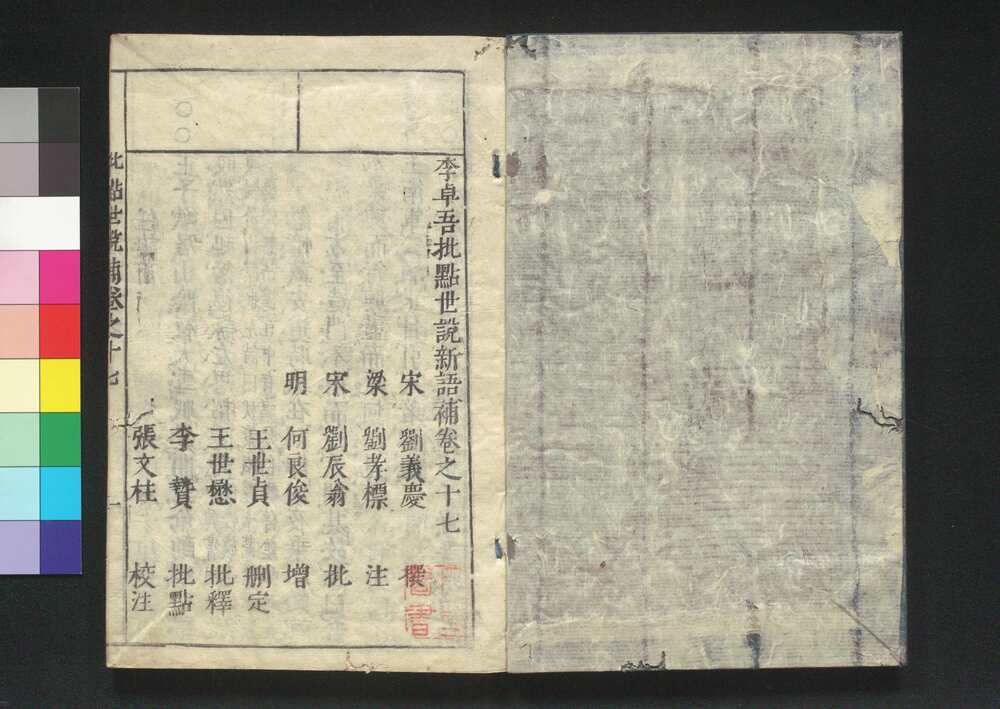 李卓吾批點世說新語補卷之十七
宋 劉義慶 撰
梁 劉孝標 注
宋 劉辰翁 批
明 何良俊 增
王世貞 刪定
王世懋 批釋
李贄 批點
張文柱 校注
批點世說補卷之十七 一